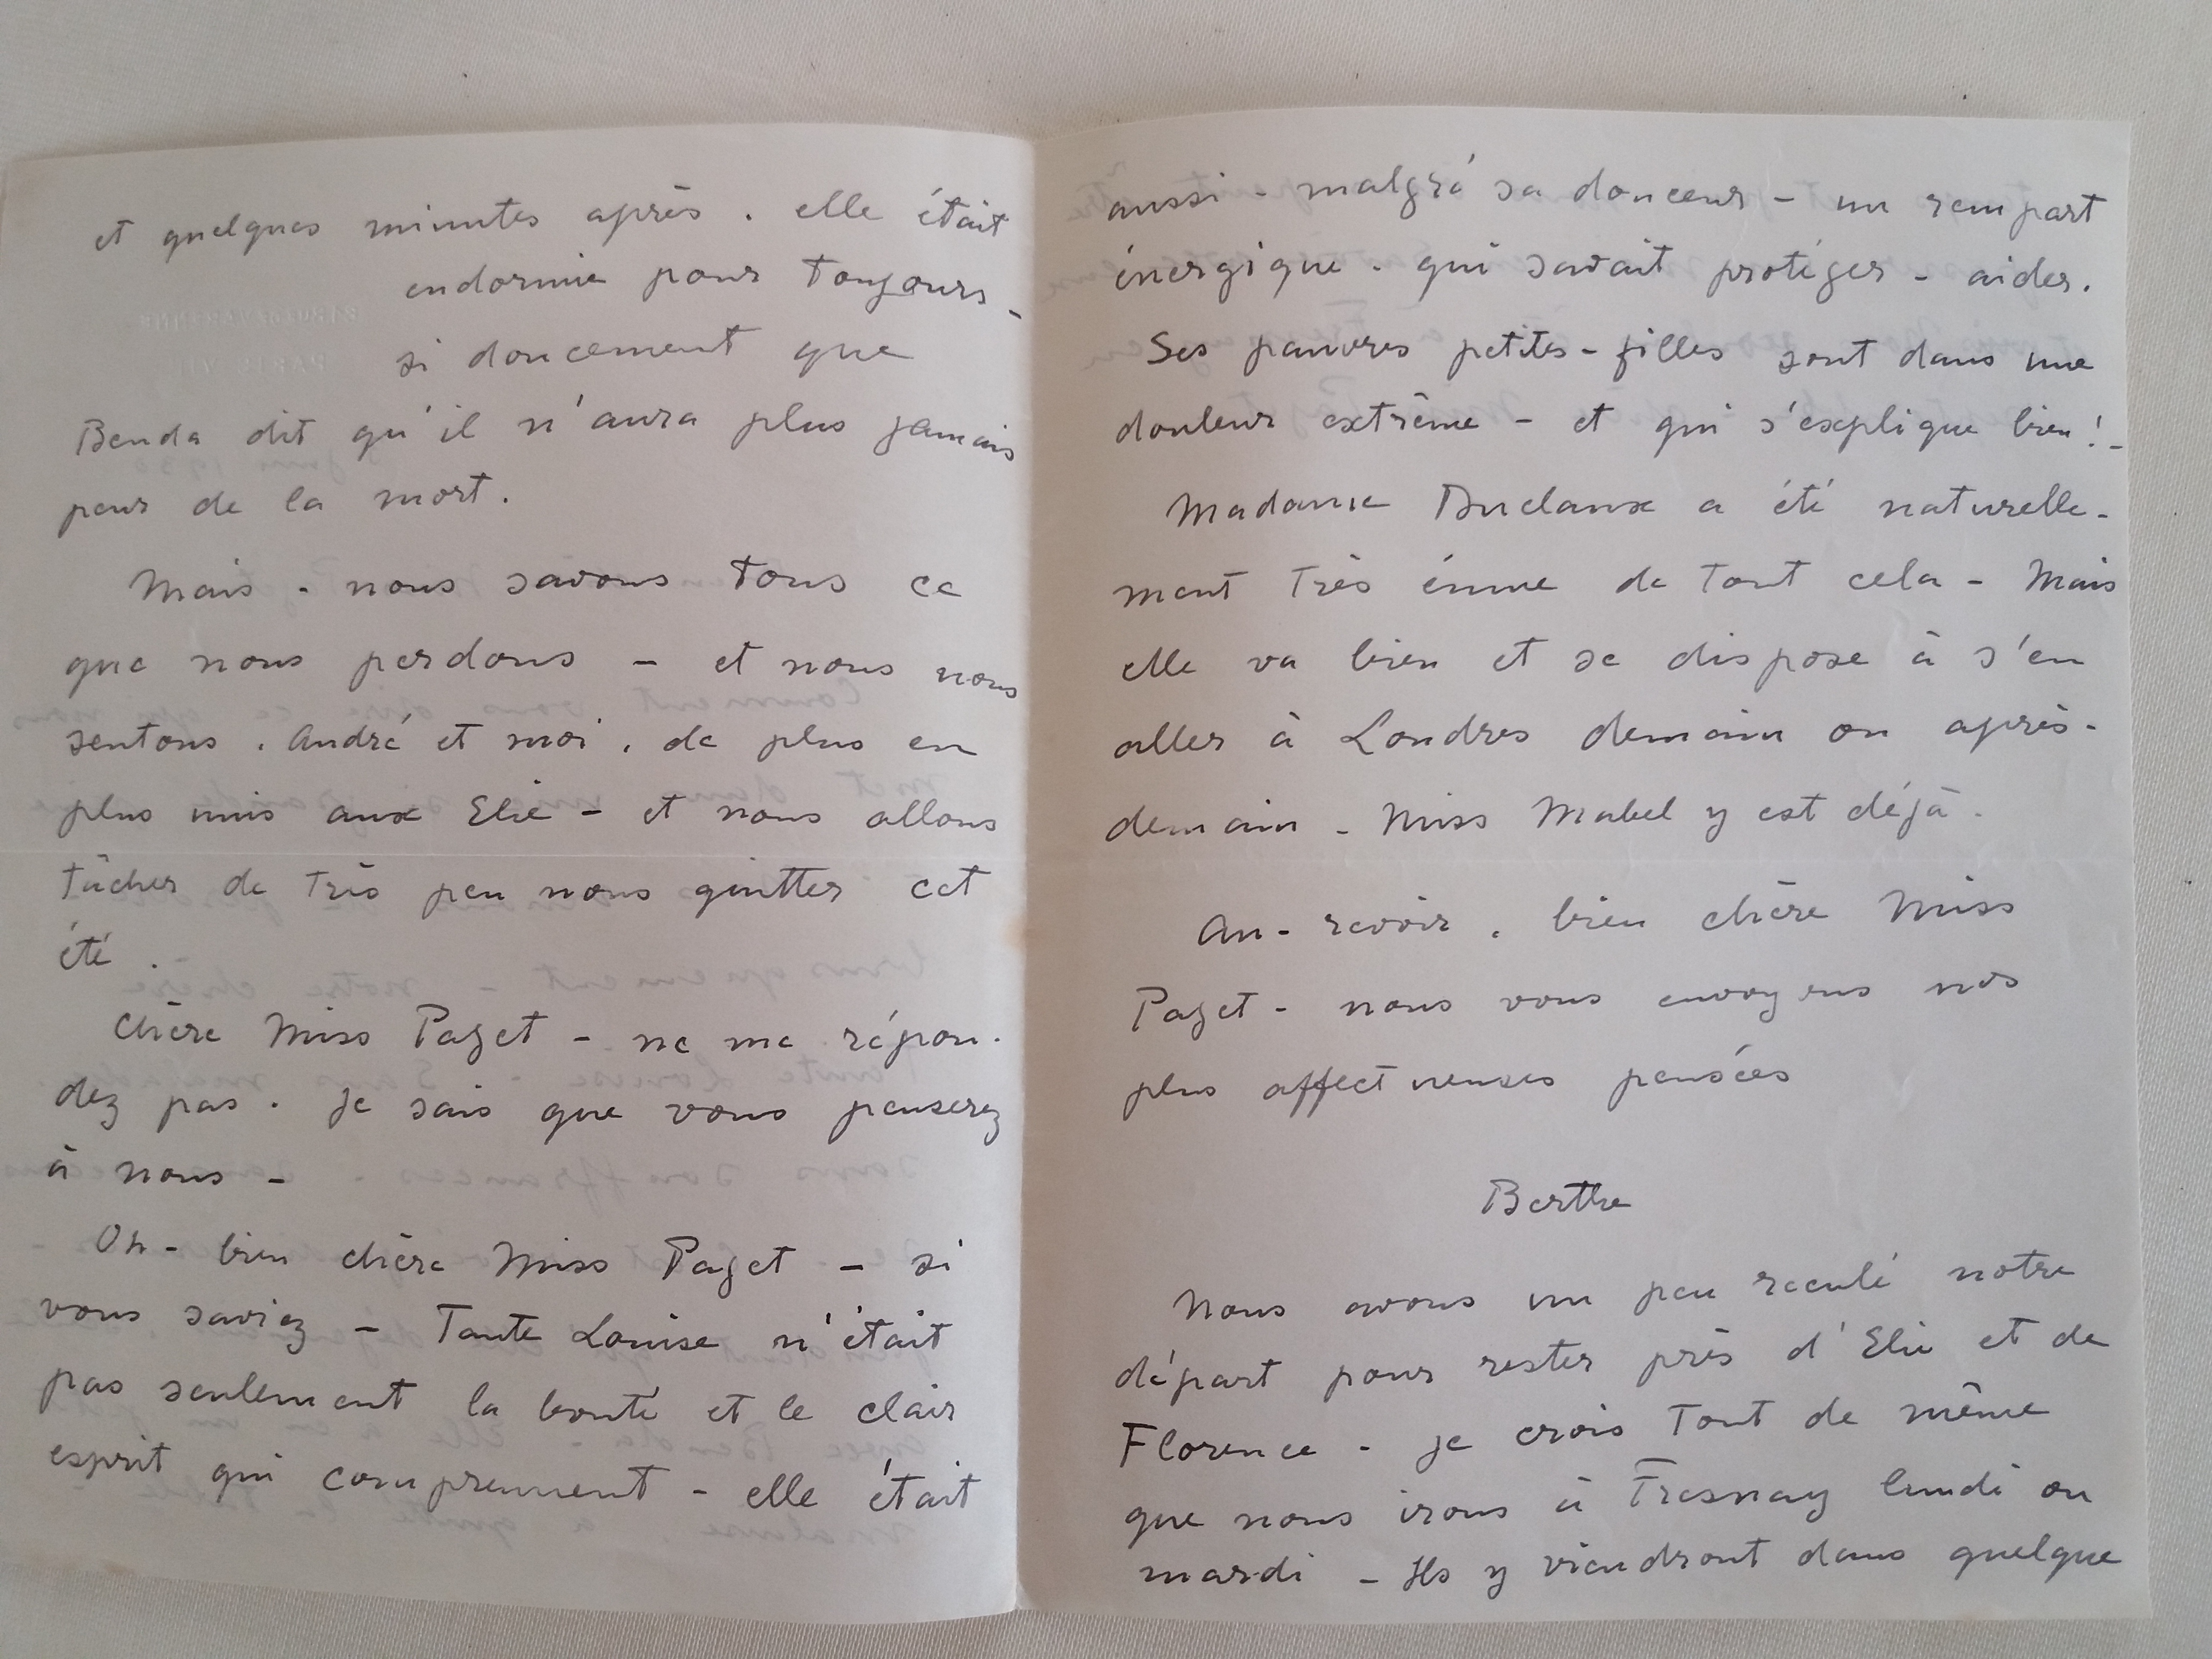 et quelques minutes après. elle était
endormie pour toujours -
si doucement que
Benda dit qu'il n'aura plus jamais
peur de la mort.
Mais - nous savons tous ce
que nous perdons - et nous nous
sentons, André et moi, de plus en
plus unis aux Elie - et nous allons
tâcher de très peu nous quitter cet
été.
Chère Miss Paget - ne me répon-
dez pas. je sais que vous penserez
à nous -
Oh - bien chère Miss Paget - si
vous saviez - Tante Louise n'était
pas seulement la bonté et le clair
esprit qui comprennent - elle était
aussi - malgré sa douceur - un rempart
énergique - qui savait protéger - aider.
Ses pauvres petites-filles sont dans une
douleur extrême - et qui s'explique bien! -
Madame Duclaux a été naturelle-
ment très émue de tout cela - Mais
elle va bien et se dispose à s'en
aller à Londres demain ou après-
demain - Miss Mabel y est déjà.
Au-revoir, bien chère Miss
Paget - nous vous envoyons nos
plus affectueuses pensées
Berthe
Nous avons un peu reculé notre
départ pour rester près d'Elie et de
Florence - je crois tout de même
que nous irons à Fresnay lundi ou
mardi - Ils y viendront dans quelque